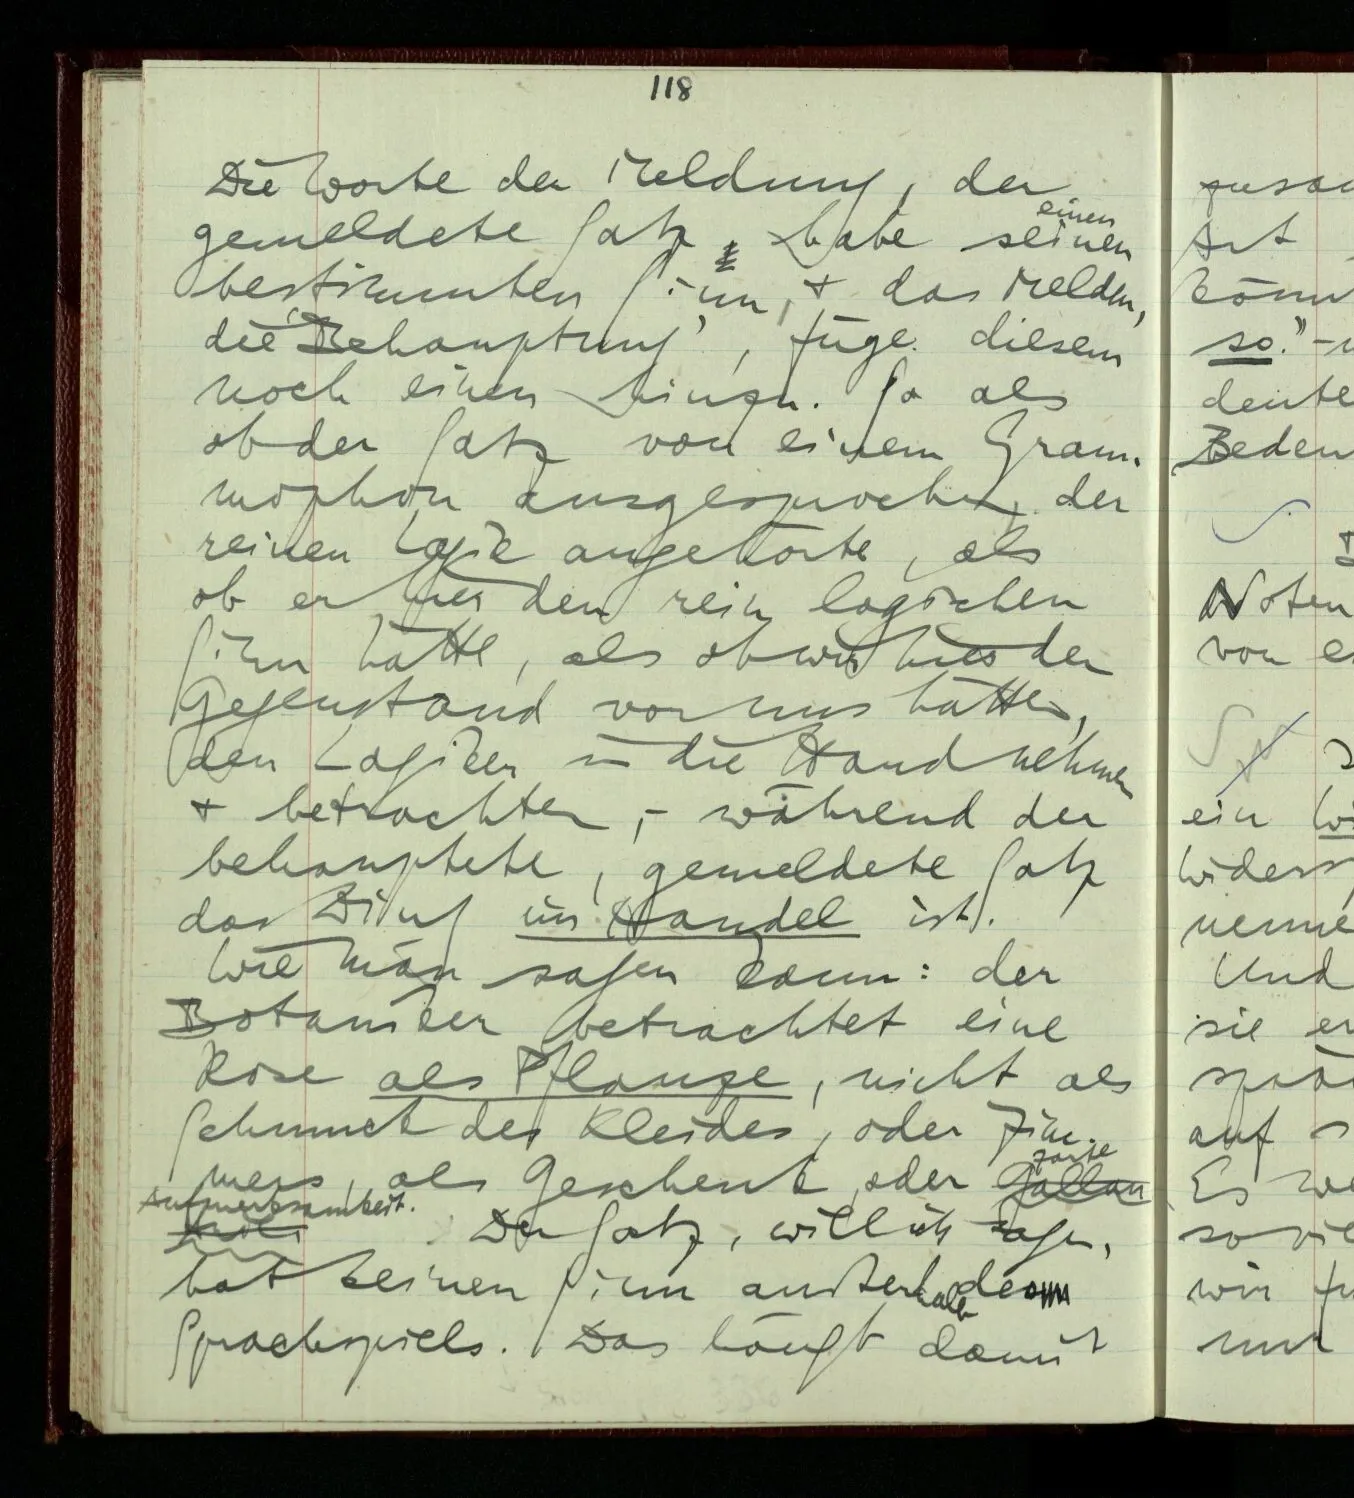 118
Die Worte der Meldung, der
gemeldete Satz, habe seinen einen
bestimmten Sinn, + das Melden,
die 'Behauptung', füge diesem
noch einen hinzu. So als
ob der Satz von einem Gram-
mophon ausgesprochen, der
reinen Logik angehörte, als
ob er hier den rein logischen
Sinn hätte, als ob wir hier den
Gegenstand vor uns hätten,
den Logiker in die Hand nehmen
+ betrachten, – während der
behauptete, gemeldete Satz
das Ding im Handel ist.
Wie man sagen kann: der
Botaniker betrachtet eine
Rose als Pflanze, nicht als
Schmuck des Kleides, oder Zim-
mers, als Geschenk, oder Gallan zarte
Aufmerksamkeit.
Der Satz, will ich sagen,
hat keinen Sinn außerhalb des
Sprachspiels. Das hängt damit
zusam
Art
könn
so." –
deute
Bedeu
Noten
von e
ein Wi
Widers
nenne
Und
sie er
spä
auf s
Es we
so viel
wir fü
nur